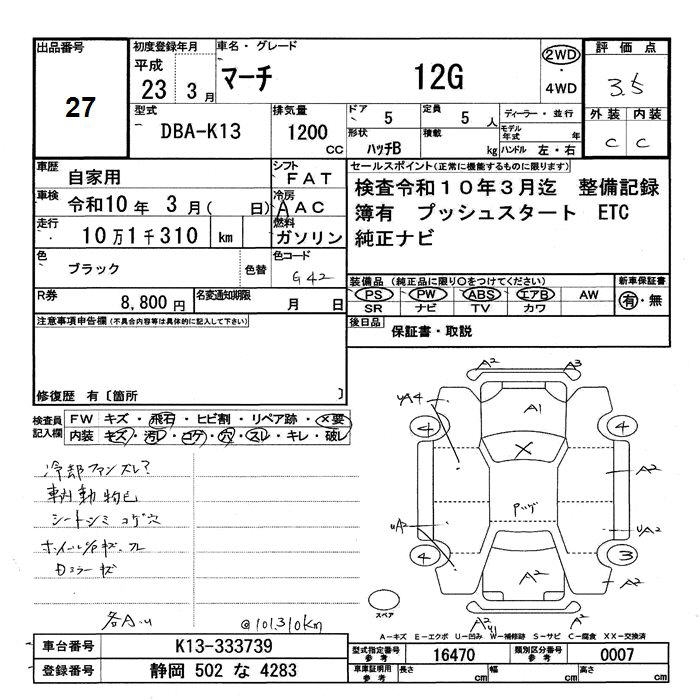 出品番号
27
初度登録年月
平成
23 3月
車名・グレード
マーチ 12G
2WD
・
4WD
評価点
3.5
外装 内装
C C
型式
DBA-K13
排気量
1200
CC
ドア 5
定員 5 人
形状 ハッチB
積載 kg
ディーラー・並行
モデル年式 年
ハンドル 左・右
車歴 自家用
シフト FAT
車検 令和10年 3月( 日)
冷房 AAC
走行 10万1千310 km
燃料 ガソリン
色 ブラック 色替
色コード G42
R券 8,800円
名変通知期限 月 日
セールスポイント(正常に機能するものに限ります)
検査令和10年3月迄 整備記録
簿有 プッシュスタート ETC
純正ナビ
装備品 (純正品に限り〇をつけてください)
PS PW ABS エアB AW
SR ナビ TV カワ
新車保証書
有・無
後日品 保証書・取説
注意事項申告欄(不具合内容等は具体的に記入して下さい)
修復歴 有〔箇所 〕
検査員
記入欄
FW キズ・飛石・ヒビ割・リペア跡・X要
内装 キズ・汚レ・コゲ・穴・スレ・キレ・破レ
冷却ファンズレ?
シートシミ コゲ穴
ドミラーキズ
@101,310km
A2 A3
UA4 A1
4 4
X
A2
パッド
UA2 UA2
4 3
A2 A2
A2 A2
スペア
A-キズ E-エクボ U-凹み W-補修跡 S-サビ C-腐食 XX-交換済
車台番号 K13-333739
登録番号 静岡 502 な 4283
型式指定番号
参考
16470
類別区分番号
参考
0007
車庫証明用
参考
長さ cm 幅 cm 高さ cm